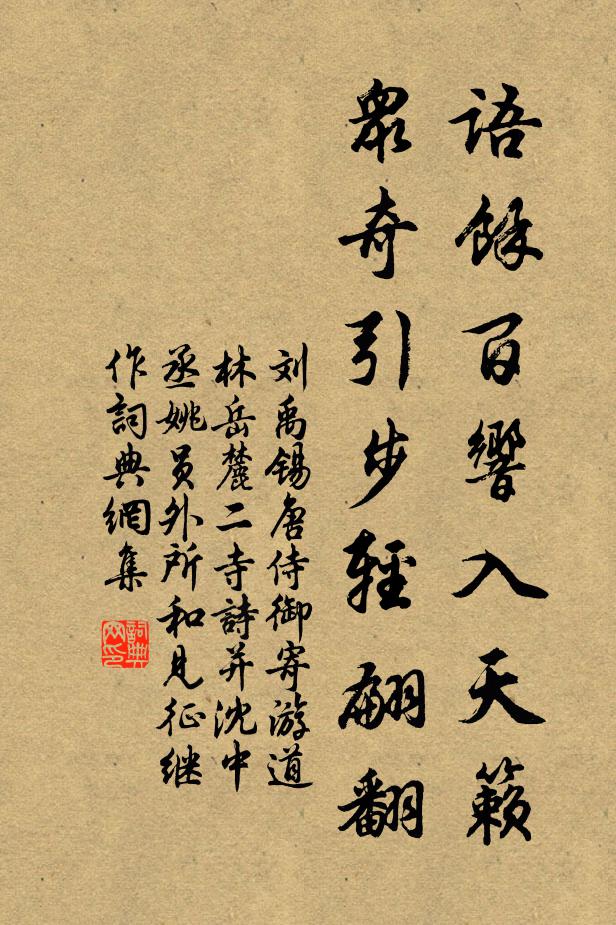 語餘百響入天籟
眾奇引步輕翩翻
刘禹锡唐侍御寄游道
林岳麓二寺詩并沈中
丞姚员外所和見征继
作詞典網集
詞典網印